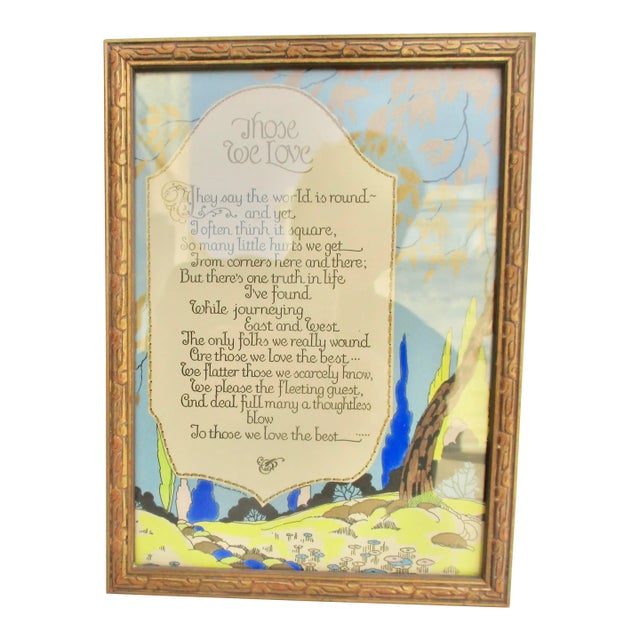 Those
We Love
They say the world is round~
and yet
I often think it square,
So many little hurts we get
From corners here and there;
But there's one truth in life
I've found
While journeying
East and West
The only folks we really wound
Are those we love the best...
We flatter those we scarcely know,
We please the fleeting guest,
And deal full many a thoughtless
blow
To those we love the best.....